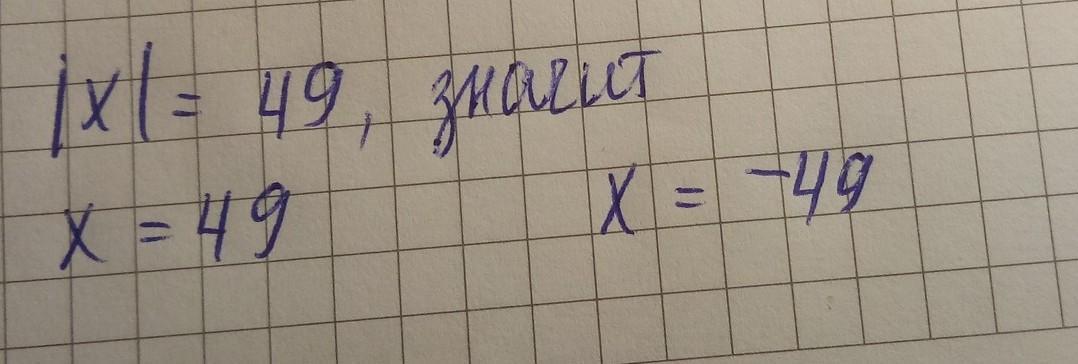 |x| = 49, значит
x = 49 x = -49